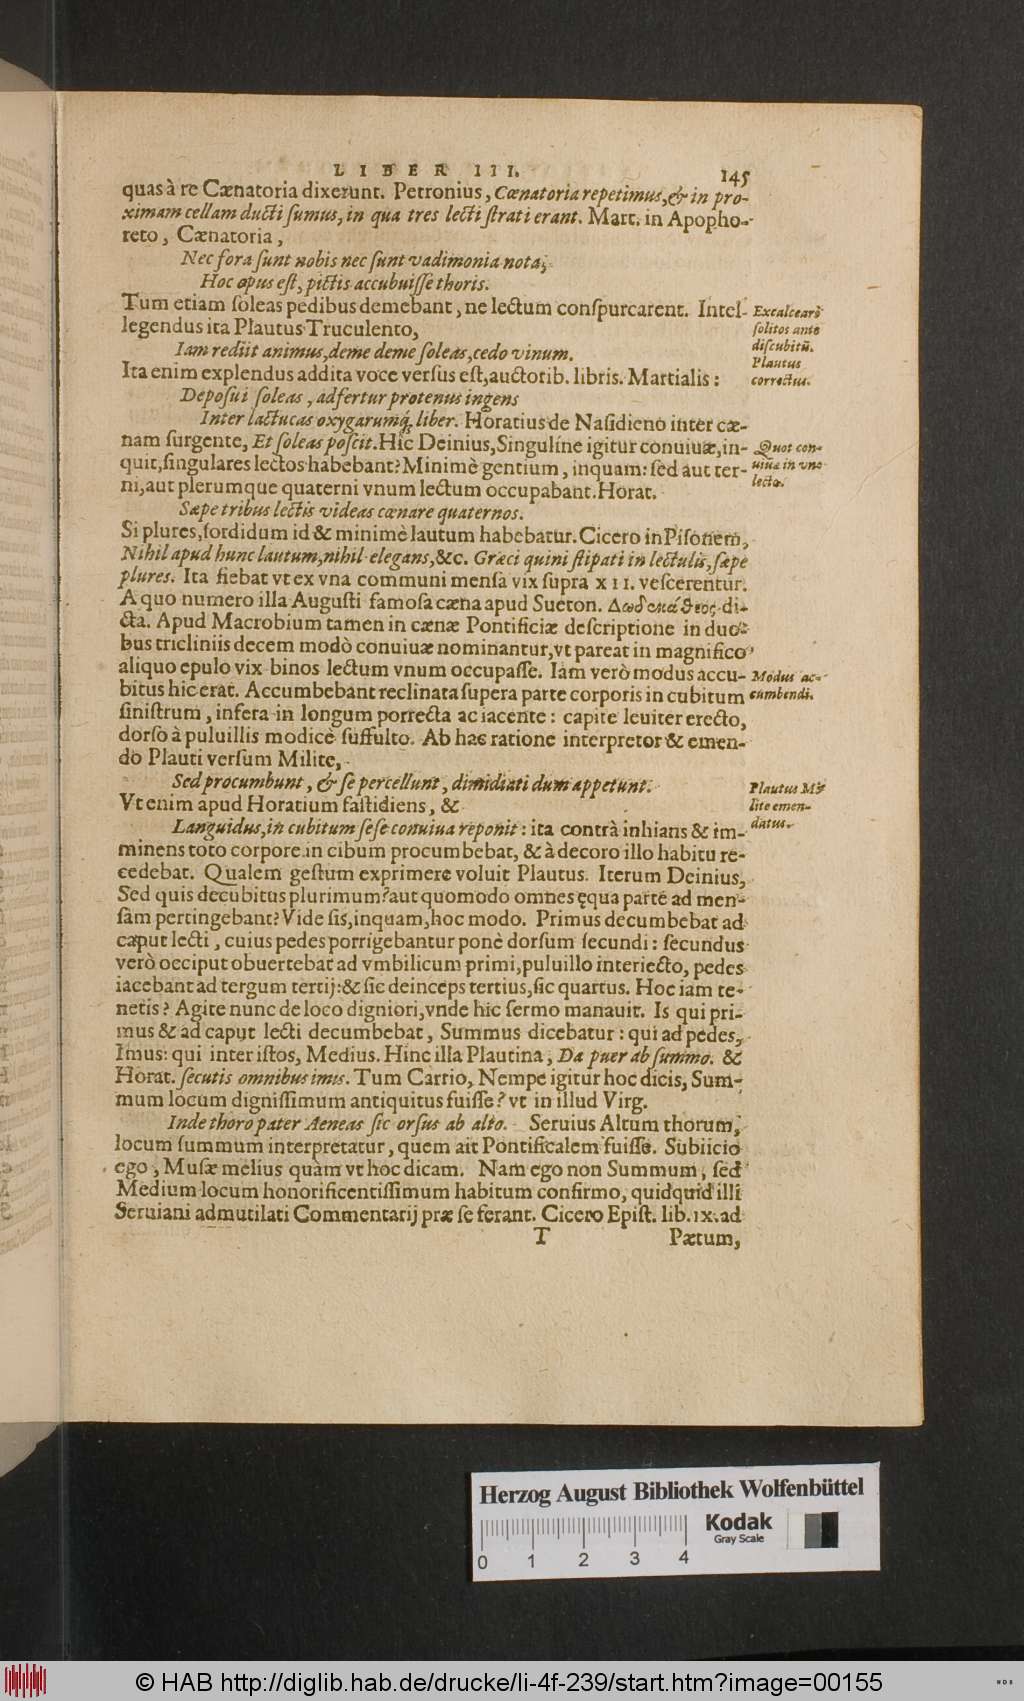 LIBER III. 145
quas à re Cænatoria dixerunt. Petronius, Cœnatoria repetimus, & in pro-
ximam cellam ducti ſumus, in qua tres lecti ſtrati erant. Mart. in Apopho-
reto, Cænatoria,
Nec fora ſunt nobis nec ſunt vadimonia nota,
Hoc opus eſt, pictis accubuiſſe thoris.
Tum etiam ſoleas pedibus demebant, ne lectum conſpurcarent. Intel-
legendus ita Plautus Truculento,
Iam rediit animus, deme deme ſoleas, cedo vinum.
Ita enim explendus addita voce verſus eſt, auctorib. libris. Martialis:
Depoſui ſoleas, adfertur protenus ingens
Inter lactucas oxygarumq́; liber. Horatius de Naſidieno inter cæ-
nam ſurgente, Et ſoleas poſcit. Hic Deinius, Singulíne igitur conuiuæ, in-
quit, ſingulares lectos habebant? Minimè gentium, inquam: ſed aut ter-
ni, aut plerumque quaterni vnum lectum occupabant. Horat.
Sæpe tribus lectis videas cœnare quaternos.
Si plures, ſordidum id & minimè lautum habebatur. Cicero in Piſonem,
Nihil apud hunc lautum, nihil elegans, &c. Græci quini ſtipati in lectulis, ſæpe
plures. Ita fiebat vt ex vna communi menſa vix ſupra XII. veſcerentur.
A quo numero illa Auguſti famoſa cæna apud Sueton. Δωδεκάθεος di-
cta. Apud Macrobium tamen in cænæ Pontificiæ deſcriptione in duo-
bus tricliniis decem modò conuiuæ nominantur, vt pareat in magnifico
aliquo epulo vix binos lectum vnum occupaſſe. Iam verò modus accu-
bitus hic erat. Accumbebant reclinata ſupera parte corporis in cubitum
ſiniſtrum, infera in longum porrecta ac iacente: capite leuiter erecto,
dorſo à puluillis modicè ſuffulto. Ab hac ratione interpretor & emen-
do Plauti verſum Milite,
Sed procumbunt, & ſe percellunt, dimidiati dum appetunt.
Vt enim apud Horatium faſtidiens, &
Languidus, in cubitum ſeſe conuiua reponit: ita contrà inhians & im-
minens toto corpore in cibum procumbebat, & à decoro illo habitu re-
cedebat. Qualem geſtum exprimere voluit Plautus. Iterum Deinius,
Sed quis decubitus plurimum? aut quomodo omnes ęqua parte ad men-
ſam pertingebant? Vide ſis, inquam, hoc modo. Primus decumbebat ad
caput lecti, cuius pedes porrigebantur ponè dorſum ſecundi: ſecundus
verò occiput obuertebat ad vmbilicum primi, puluillo interiecto, pedes
iacebant ad tergum tertij: & ſic deinceps tertius, ſic quartus. Hoc iam te-
netis? Agite nunc de loco digniori, vnde hic ſermo manauit. Is qui pri-
mus & ad caput lecti decumbebat, Summus dicebatur: qui ad pedes,
Imus: qui inter iſtos, Medius. Hinc illa Plautina, Da puer ab ſummo. &
Horat. ſecutis omnibus imis. Tum Carrio, Nempe igitur hoc dicis, Sum-
mum locum digniſſimum antiquitus fuiſſe? vt in illud Virg.
Inde thoro pater Aeneas ſic orſus ab alto. Seruius Altum thorum,
locum ſummum interpretatur, quem ait Pontificalem fuiſſe. Subiicio
ego, Muſæ melius quàm vt hoc dicam. Nam ego non Summum, ſed
Medium locum honorificentiſſimum habitum confirmo, quidquid illi
Seruiani admutilati Commentarij præ ſe ferant. Cicero Epiſt. lib. IX. ad
T Pætum,
Excalceari
ſolitos ante
diſcubitũ.
Plautus
correctus.
Quot con-
uiuæ in vno
lecto.
Modus ac-
cumbendi.
Plautus Mi-
lite emen-
datus.
Herzog August Bibliothek Wolfenbüttel
Kodak
Gray Scale
0 1 2 3 4
© HAB http://diglib.hab.de/drucke/li-4f-239/start.htm?image=00155